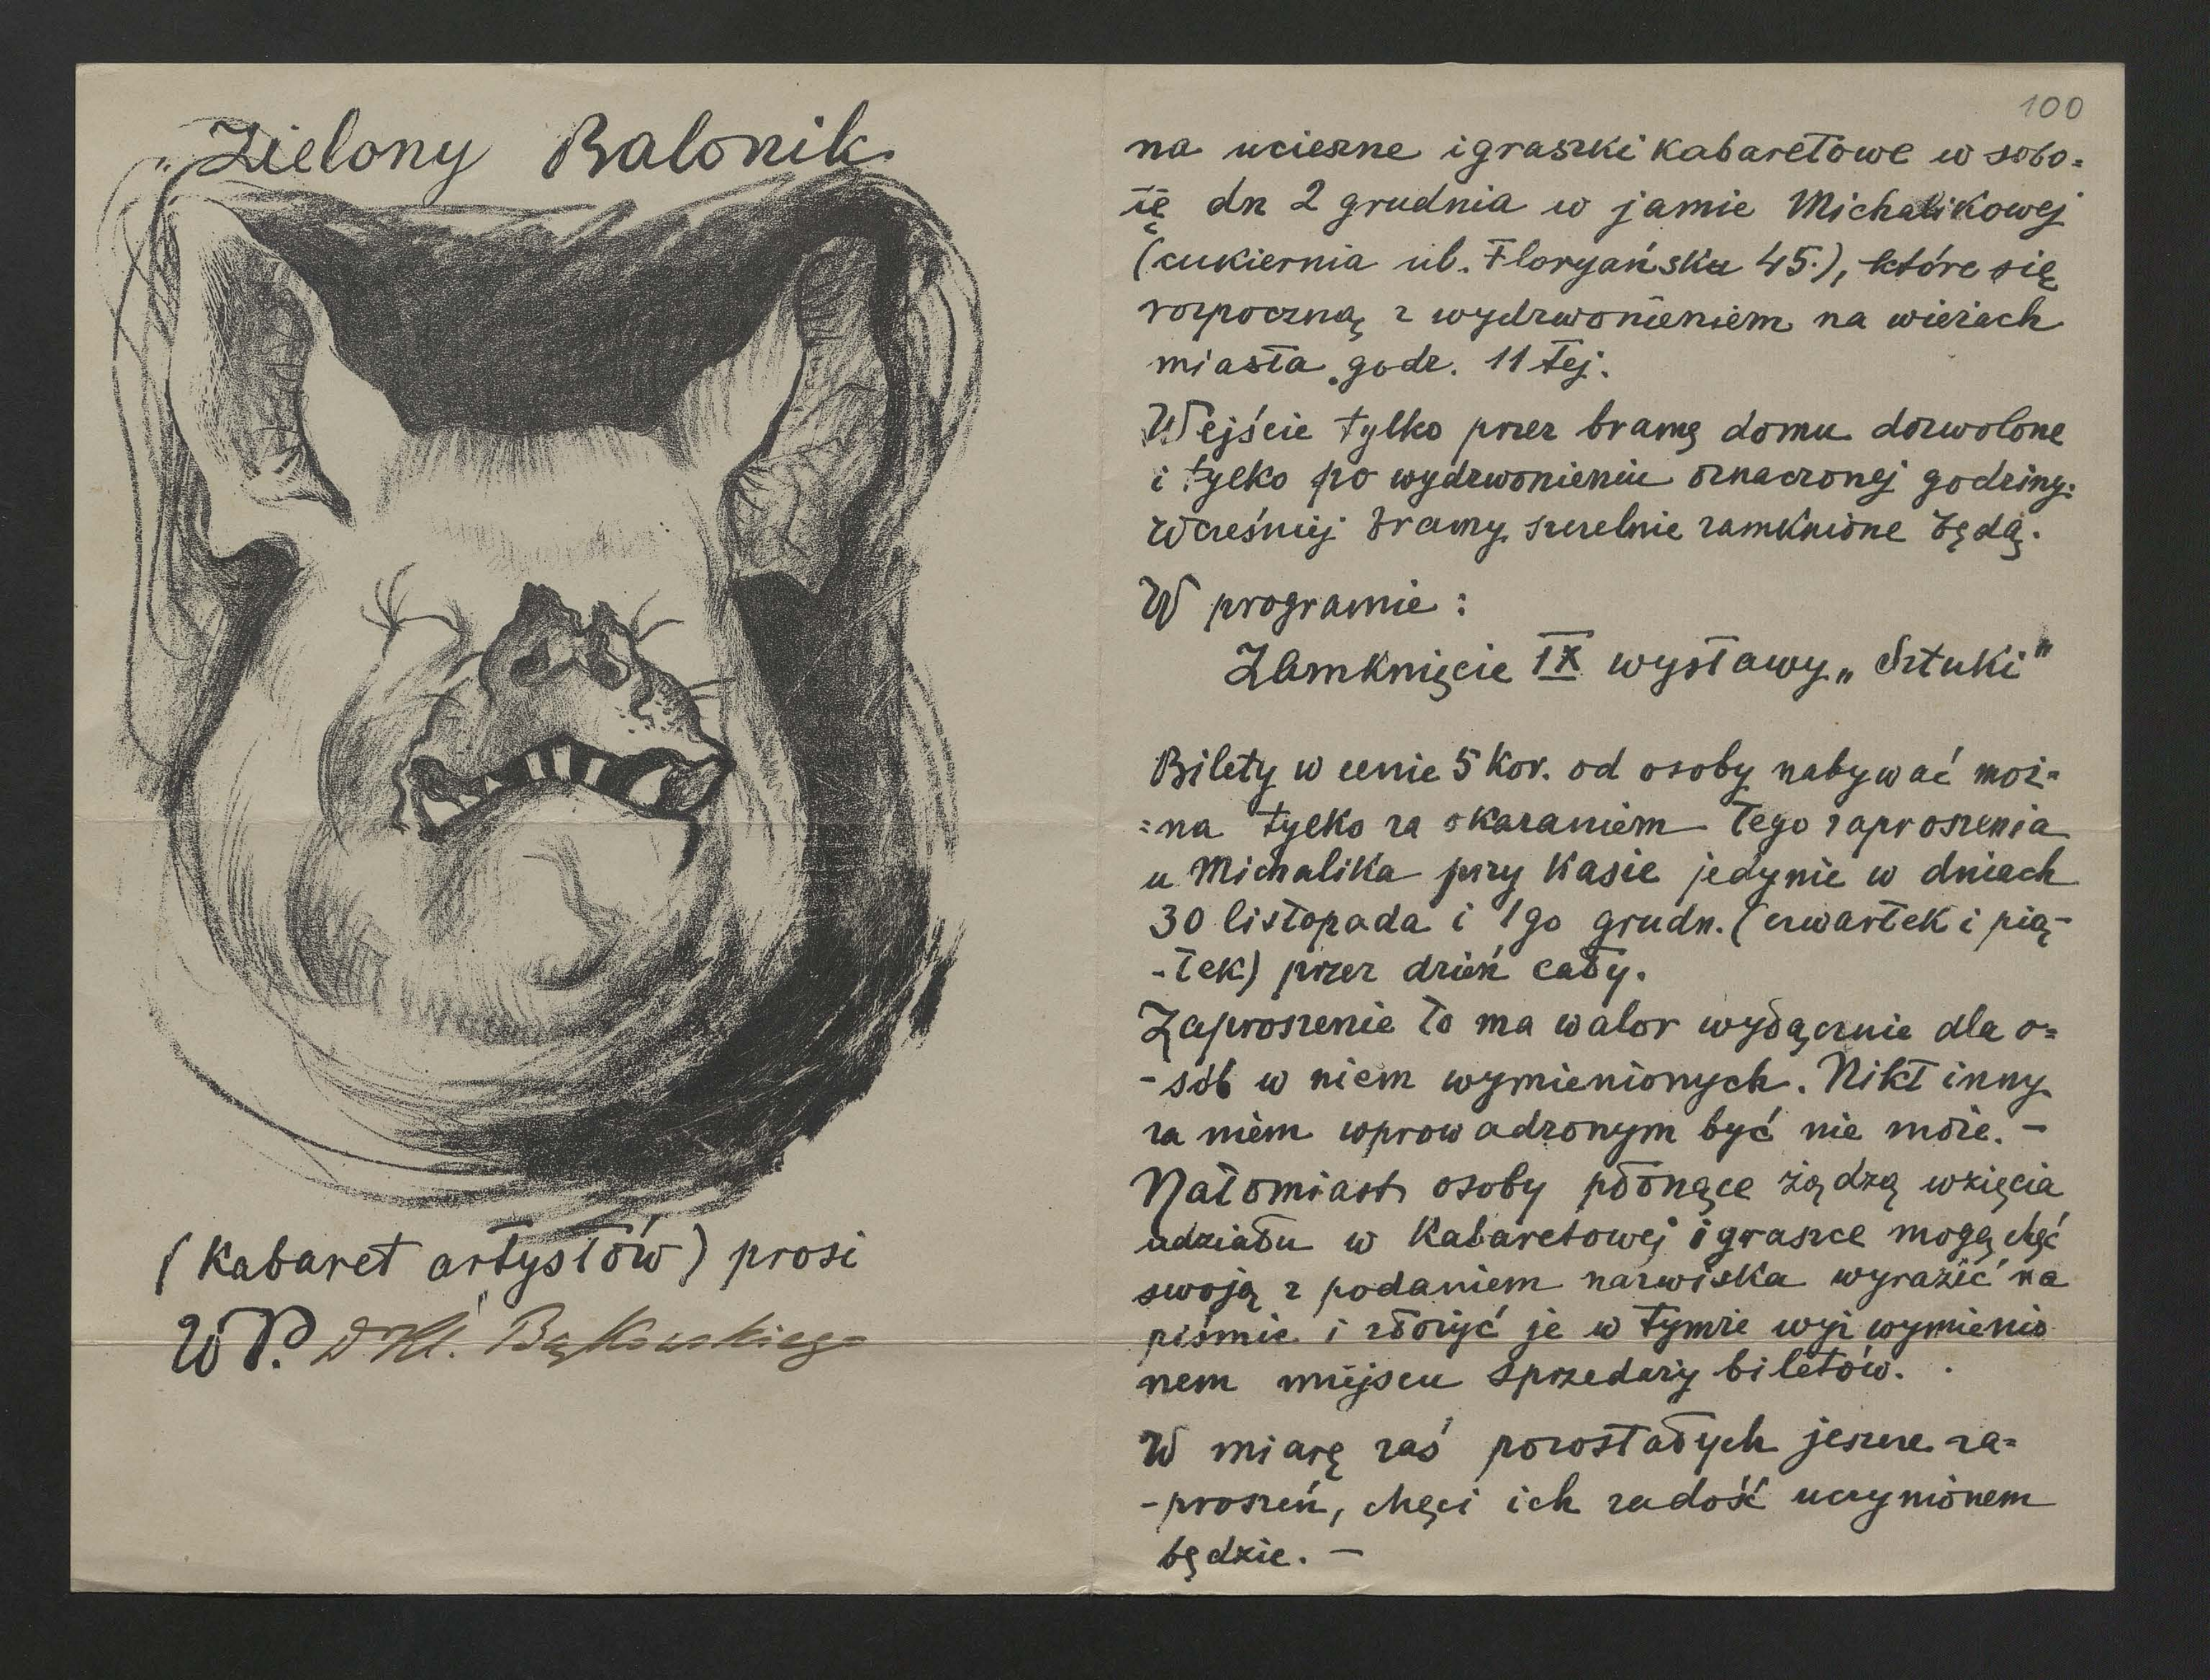 „Zielony Balonik.
(Kabaret artystów) prosi
WP. Dr Kl. Bąkowskiego
100
na ucieszne igraszki kabaretowe w sobo=
tę dn 2 grudnia w jamie Michalikowej
(cukiernia ul. Floryańska 45.), które się
rozpoczną z wydzwonieniem na wieżach
miasta godz. 11 tej.
Wejście tylko przez bramę domu dozwolone
i tylko po wydzwonieniu oznaczonej godziny.
Wcześniej bramy szczelnie zamknione będą.
W programie:
Zamknięcie IX wystawy „Sztuki"
Bilety w cenie 5 Kor. od osoby nabywać moż=
=na tylko za okazaniem tego zaproszenia
u Michalika przy Kasie jedynie w dniach
30 listopada i 1go grudn. (czwartek i pią-
-tek) przez dzień cały.
Zaproszenie to ma walor wyłącznie dla o=
-sób w niem wymienionych. Nikt inny
za niem wprowadzonym być nie może. -
Natomiast osoby płonące żądzą wzięcia
udziału w Kabaretowej igraszce mogą chęć
swoją z podaniem nazwiska wyrazić na
piśmie i złożyć je w tymże wyż wymienio
nem miejscu sprzedaży biletów.
W miarę zaś pozostałych jeszcze za=
-proszeń, chęci ich zadość uczynionem
będzie. -